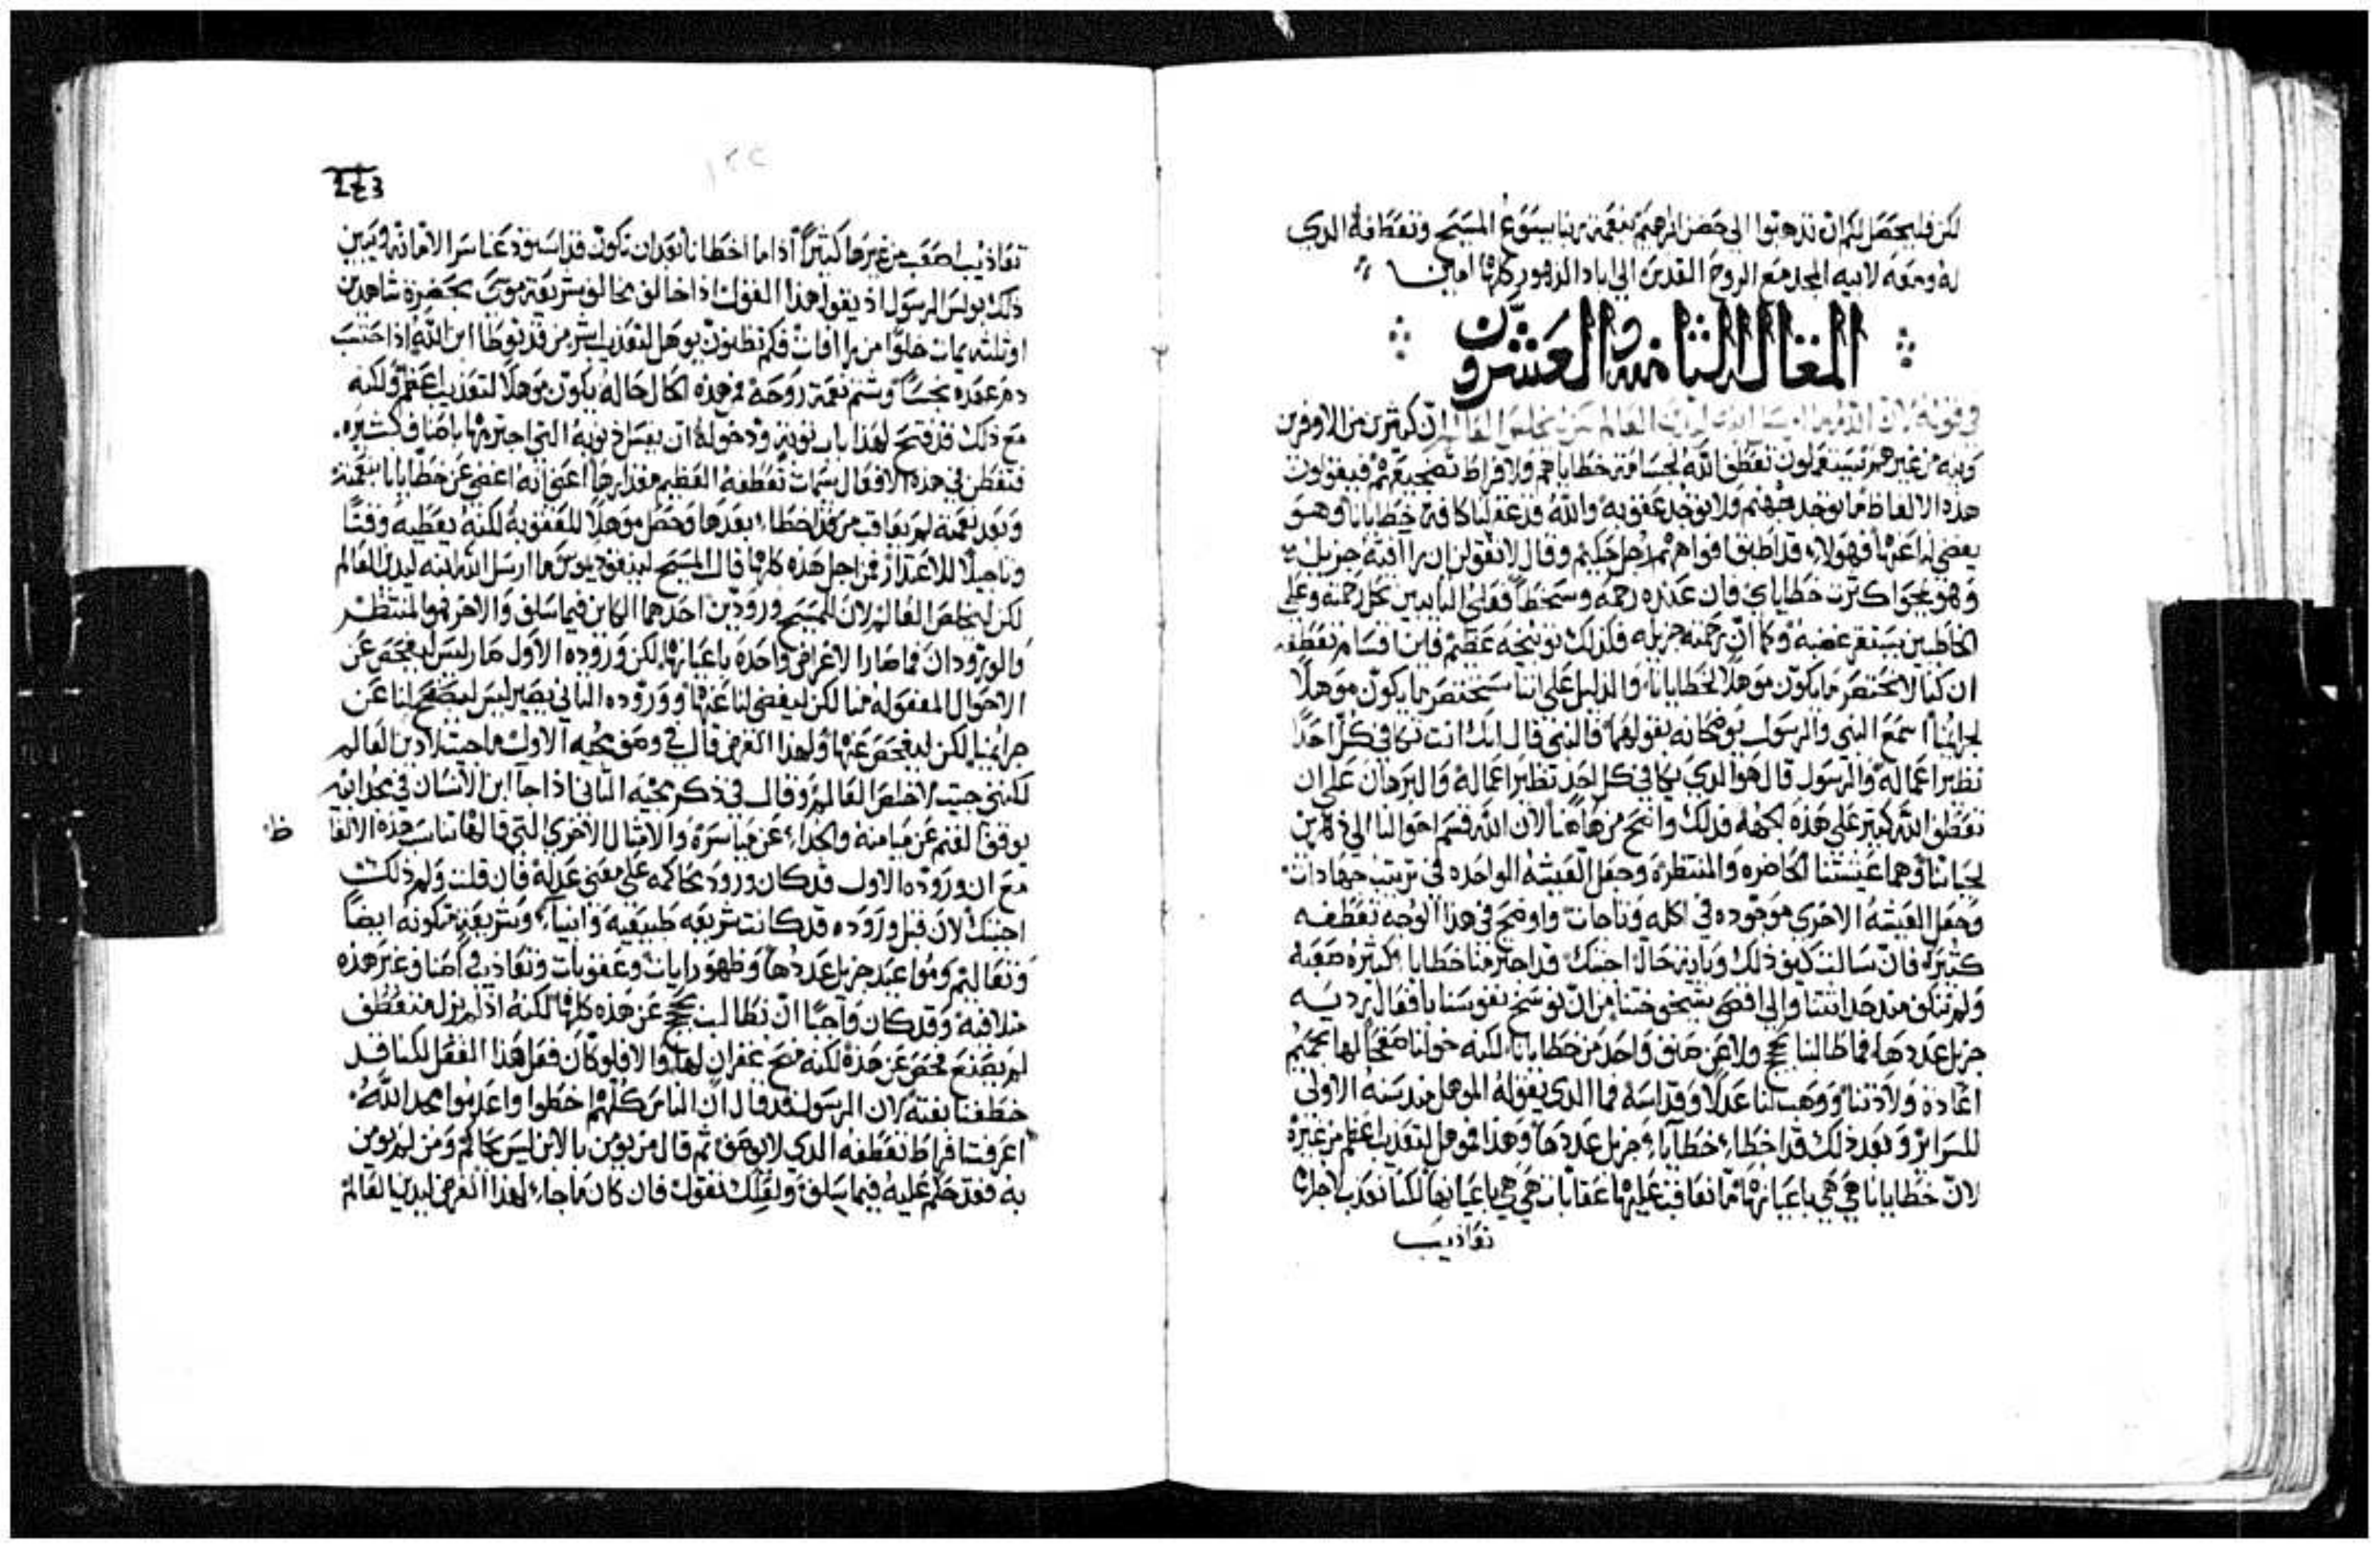 لكن فليحصل لكم ان تذهبوا الى حضن ابرهيم بنعمة ربنا يسوع المسيح وتعطفه الدي
له ومعه لابيه المجد مع الروح القدس الى اباد الدهور كلها امين
المقاله الثامنه والعشرون
في قوله لان الله لم يرسل ابنه ليدين العالم لكن ليخلص العالم ان كثيرين من الاوفرين
ونيه من غيرهم يستعملون تعطف الله لجسامة خطاياهم ولافراط تضجيعهم فيقولون
هذه الالفاظ ما يوجد جهنم ولا يوجد عقوبه والله قد غفر لنا كافة خطايانا وهو
يغضي لنا عنها فهولاء قد اطبق افواههم رجل حكيم وقال لا تقولن ان راافته جزيله
وهو يمحوا كثرت خطاياي فان عنده رحمه وسخطاً فعلى التايبين تحل رحمته وعلى
الخاطيين يستقر غضبه وكما ان رحمته جزيله فكذلك توبيخه عظيم فاين اقسام تعطفه
ان كنا لا نختصر ما يكون موهلاً لخطايانا والدليل على اننا سنختصر ما يكون موهلاً
لجرايمنا اسمع النبي والرسول يوضحانه بقولهما فالنبي قال انك انت تكافي كل احداً
نظير اعماله والرسول قال هو الدي يكافي كل احد نظير اعماله والبرهان على ان
تعطف الله كثير على هذه الجهه فدلك واضح من هاهنا لان الله قسم احوالنا الى دهرين
لحياتنا وهما عيشتنا الحاضره والمنتظره وجعل العيشه الواحده في ترتيب جهادات
وجعل العيشه الاخرى موجوده في اكله وتاجات واوضح في هذا الوجه تعطفه
كثيره فان سالت كيف ذلك وباية حالة اجبتك قد اجترمنا خطايا كثيره صعبه
ولم نكف مند حداثتنا والى اقصى شيخوختنا من ان نوسخ نفوسنا بافعال رديه
جزيل عددها فما طالبنا بحجج ولا عن صنف واحد من خطايانا لكنه خولنا صفحاً لها بحميم
اعادة ولادتنا ووهب لنا عدلاً وقداسة فما الدي يقوله الموهل مند سنه الاولى
للسراير وبعد ذلك قد اخطاء خطايا جزيل عددها وهذا فموهل لتعذيب اعظم من غيره
لان خطايانا هي هي باعيانها ما نعاقب عليها عقابات هي هي باعيانها لكننا نعذب لاجلها
تعاذيب
243
تعاذيب اصعب من غيرها كثيراً اذا ما اخطانا بعد ان نكون قد استودعنا سر الامانه ويبين
ذلك بولس الرسول اذ يقول هذا القول اذا خالف مخالف شريعة موسى بحضرة شاهدين
او ثلثه يمات خلوا من راافات فكم تظنون يوهل لتعذيب اشر من قد توطا ابن الله اذا حسب
دم عهده نجساً وشتم نعمة روحه فمن هذه الحال حاله يكون موهلاً لتعذيب اعظم ولكنه
مع ذلك قد فتح لهذا باب توبته ودخوله ان يغسل ذنوبه التي اجترمها باصناف كثيره
فتفطن في هذه الافعال سمات تعطفه العظيم مقدارها اعني انه اغضي عن خطايانا بنعمته
وبعد نعمته لم يعاقب من قد اخطاء بعدها وحصل موهلاً للعقوبة لكنه يعطيه وقتاً
وتاجيلاً للاعتذار فمن اجل هذه كلها قال المسيح لنيقوديموس ما ارسل الله ابنه ليدين العالم
لكن ليخلص العالم لان للمسيح ورودين احدهما الكاين فيما سلف والاخر فهو المنتظر
والورودان فما صارا لاغراض واحده باعيانها لكن وروده الاول صار ليس ليفحص عن
الاحوال المفعوله منا لكن ليغضي لنا عنها ووروده الثاني يصير ليس ليصفح لنا عن
جرايمنا لكن ليفحص عنها ولهذا الغرض قال في وصف مجيه الاول ما جيت لادين العالم
لكنني جيت لاخلص العالم وقال في ذكر مجيه الثاني اذا جا ابن الانسان في مجد ابيه
يوقف الغنم عن ميامنه والجداء عن مياسره والامثال الاخرى التي قالها تناسب هذه الالفا ظ
مع ان وروده الاول قد كان ورود محاكمه على معنى عدله فان قلت ولم ذلك
اجبتك لان قبل وروده قد كانت شريعه طبيعيه وانبياء وشريعة مكتوبه ايضاً
وتعاليم ومواعيد جزيل عددها وظهور ايات وعقوبات وتعاذيب واصناف غير هذه
متلافته وقد كان واجباً ان نطالب بحجج عن هذه كلها لكنه اذ لم يزل متعطف
لم يصنع فحص عن هذه لكنه منح غفران لها والا فلو كان فعل هذا الفعل لكنا قد
خطفنا بغتة لان الرسول فقد قال ان الناس كلهم اخطوا واعدموا مجد الله
اعرفت افراط تعطفه الدي لا يوصف ثم قال من يومن بالابن ليس يحاكم ومن لم يومن
به فقد حكم عليه فيما سلف ولعلك تقول فان كان ما جاء لهذا الغرض ليدين العالم